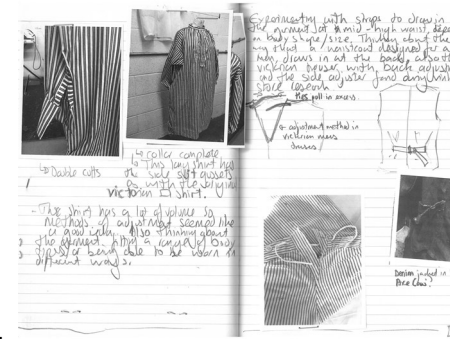 ↳ Double cuffs
↳ Collar complete
↳ This long shirt has
the side slit gussets
as with the original
Victorian shirt.
- This shirt has a lot of volume so
methods of adjustment seemed like
a good idea. Also thinking about
the garment fitting a range of body
types or being able to be worn in
different ways.
Experimenting with straps to draw in
the garment at a mid-high waist, depe
on body shape/size. Thinking about the
way that a waistcoat designed for a
man, draws in at the back, also th
victorian trouser with back adjust
and the side adjuster
store research
ties pull in excess.
adjustment method in
victorian
dresses
Denim